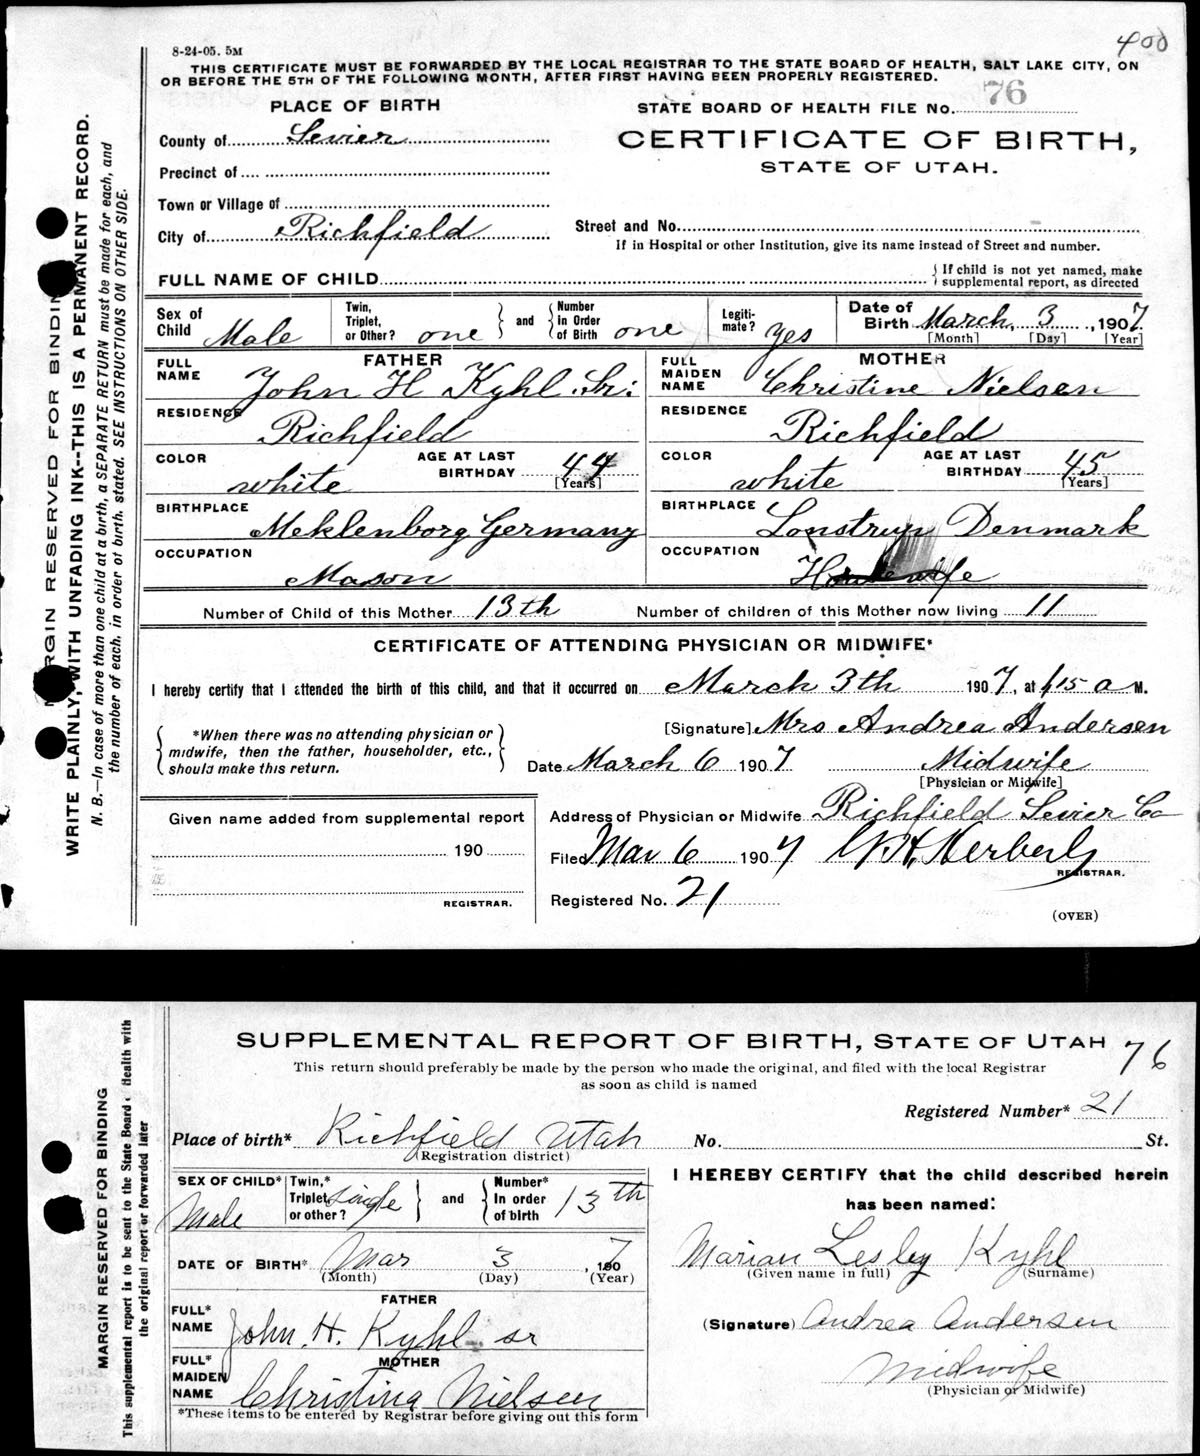 400
8-24-05. 5M
THIS CERTIFICATE MUST BE FORWARDED BY THE LOCAL REGISTRAR TO THE STATE BOARD OF HEALTH, SALT LAKE CITY, ON
OR BEFORE THE 5TH OF THE FOLLOWING MONTH, AFTER FIRST HAVING BEEN PROPERLY REGISTERED.
PLACE OF BIRTH
STATE BOARD OF HEALTH FILE No. 76
County of Sevier
CERTIFICATE OF BIRTH,
STATE OF UTAH.
Precinct of
Town or Village of
City of Richfield
Street and No.
If in Hospital or other Institution, give its name instead of Street and number.
FULL NAME OF CHILD
{ If child is not yet named, make
supplemental report, as directed
Sex of Child Male
Twin, Triplet, or Other? one
and
Number In Order of Birth one
Legiti-mate? yes
Date of Birth March 3, 1907
[Month] [Day] [Year]
FATHER
MOTHER
FULL NAME John H Kyhl Sr.
FULL MAIDEN NAME Christine Nielsen
RESIDENCE Richfield
RESIDENCE Richfield
COLOR white
AGE AT LAST BIRTHDAY 44
[Years]
COLOR white
AGE AT LAST BIRTHDAY 45
[Years]
BIRTHPLACE Meklenborg Germany
BIRTHPLACE Lonstrup Denmark
OCCUPATION Mason
OCCUPATION Housewife
Number of Child of this Mother 13th
Number of children of this Mother now living 11
CERTIFICATE OF ATTENDING PHYSICIAN OR MIDWIFE*
I hereby certify that I attended the birth of this child, and that it occurred on March 3th 1907, at 15 a M.
*When there was no attending physician or
midwife, then the father, householder, etc.,
should make this return.
[Signature] Mrs Andrea Andersen
Date March 6 1907
Midwife
[Physician or Midwife]
Given name added from supplemental report
190
REGISTRAR.
Address of Physician or Midwife Richfield Sevier Co
Filed Mar 6 1907
REGISTRAR.
Registered No. 21
(OVER)
MARGIN RESERVED FOR BINDING
WRITE PLAINLY, WITH UNFADING INK--THIS IS A PERMANENT RECORD.
N. B.—In case of more than one child at a birth, a SEPARATE RETURN must be made for each, and
the number of each, in order of birth, stated. SEE INSTRUCTIONS ON OTHER SIDE.
SUPPLEMENTAL REPORT OF BIRTH, STATE OF UTAH 76
This return should preferably be made by the person who made the original, and filed with the local Registrar
as soon as child is named
Registered Number* 21
Place of birth* Richfield Utah No. St.
(Registration district)
SEX OF CHILD* Male
Twin,* Triplet or other? single
and
Number* In order of birth 13th
DATE OF BIRTH* Mar 3, 1907
(Month) (Day) (Year)
FATHER
FULL* NAME John. H. Kyhl sr
MOTHER
FULL* MAIDEN NAME Christina Nielsen
*These items to be entered by Registrar before giving out this form
I HEREBY CERTIFY that the child described herein
has been named:
Marian Lesley Kyhl
(Given name in full) (Surname)
(Signature) Andrea Andersen
Midwife
(Physician or Midwife)
MARGIN RESERVED FOR BINDING
This supplemental report is to be sent to the State Board of Health with
the original report or forwarded later